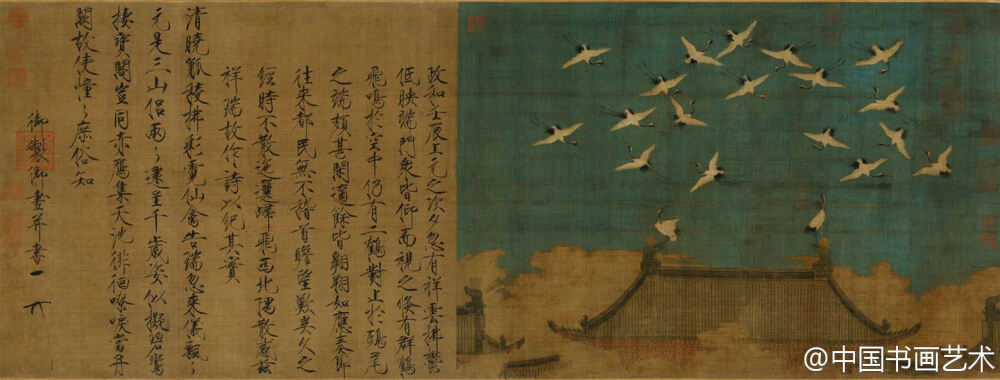 政和壬辰上元之次夕忽有祥雲拂鬱
低映端門衆皆仰而視之倏有群鶴
飛鳴於空中仍有二鶴對止於鴟尾
之端頗甚閑適餘皆翱翔如應奏節
往來都民無不稽首瞻望歎異久之
經時不散迤邐歸飛西北隅散感茲
祥瑞故作詩以紀其實
清曉觚稜拂彩霓仙禽告瑞忽來儀飄〻
元是三山侶兩〻還呈千歲姿似擬碧鸞
棲寶閣豈同赤鴈集天池徘徊嘹唳當丹
闕故使憧〻庶俗知
御製御畫并書
@中国书画艺术